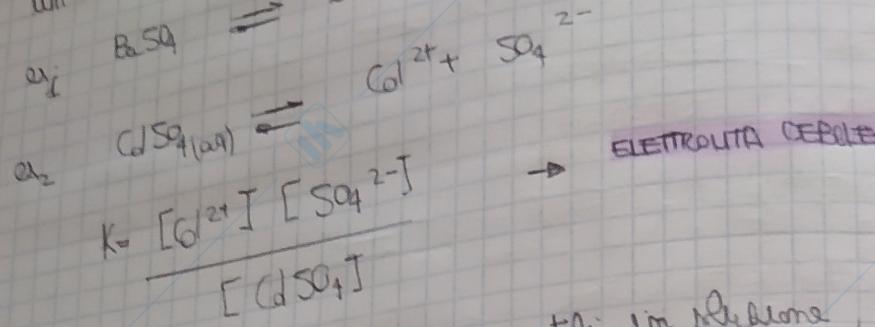 ex1 BaSO4 ⇌
ex2 CdSO4(aq) ⇌ Cd2+ + SO4 2-
K= [Cd2+] [SO4 2-] / [CdSO4] → ELETTROLITA DEBOLE
in